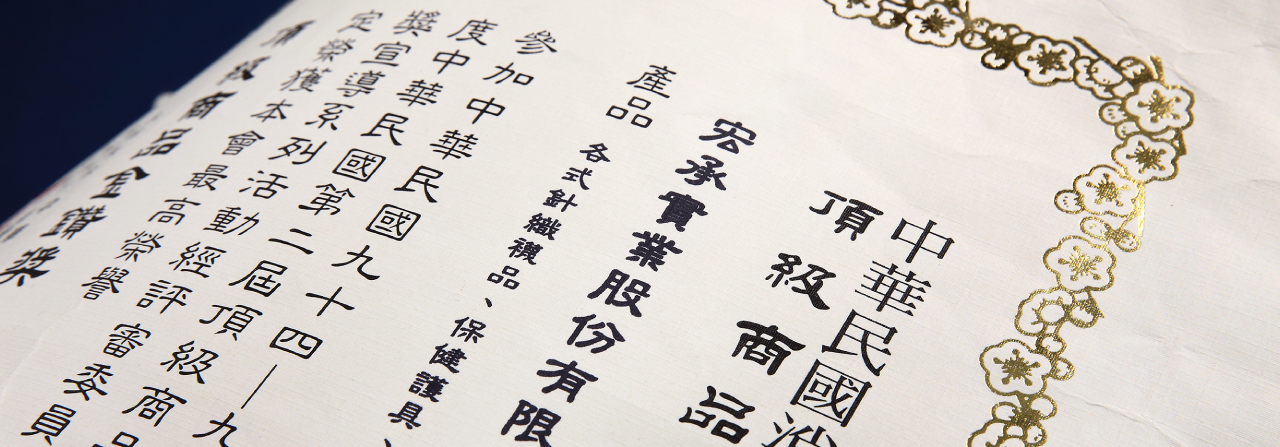 中華民國
頂級商品
宏承實業股份有限
產品 各式針織襪品、保健護具、
參加中華民國九十四—九
度中華民國第二屆頂級商品
獎宣導系列活動經評審委員
定榮獲本會最高榮譽
頂級商品金鑽獎